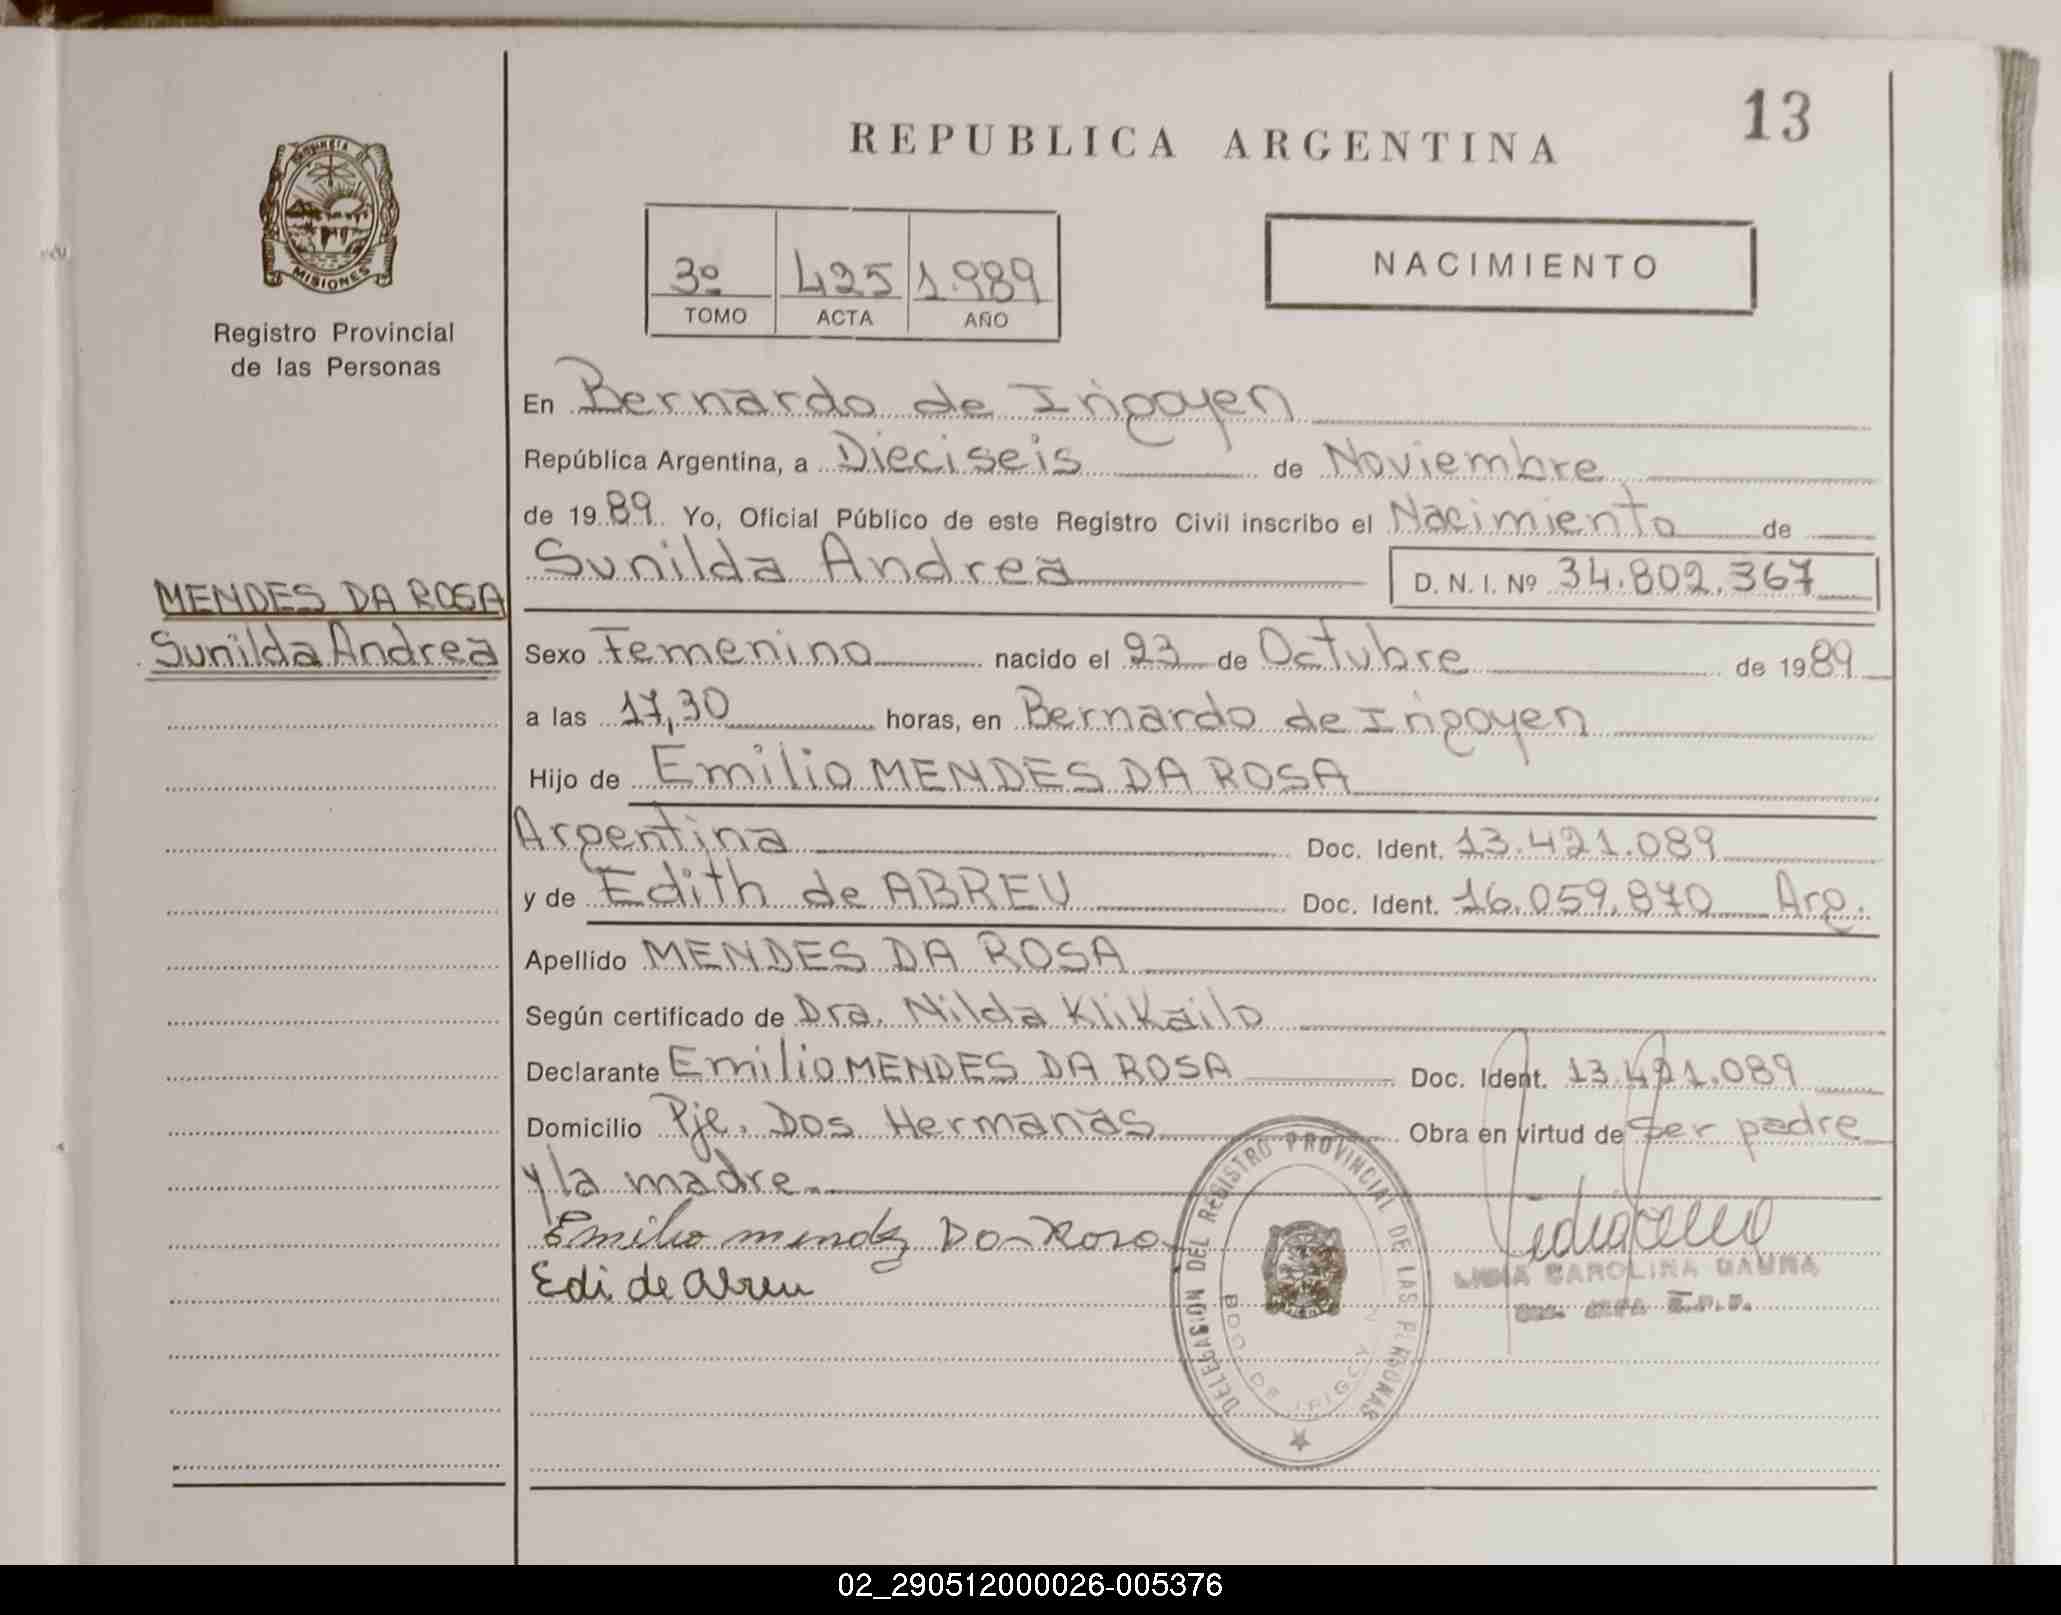 13
REPUBLICA ARGENTINA
PROVINCIA DE
MISIONES
Registro Provincial
de las Personas
3º 425 1.989
TOMO ACTA AÑO
NACIMIENTO
En Bernardo de Irigoyen
República Argentina, a Dieciseis de Noviembre
de 1989 Yo, Oficial Público de este Registro Civil inscribo el Nacimiento de
Sunilda Andrea D. N. I. Nº 34.802.367
MENDES DA ROSA
Sunilda Andrea
Sexo Femenino nacido el 23 de Octubre de 1989
a las 17,30 horas, en Bernardo de Irigoyen
Hijo de Emilio MENDES DA ROSA
Argentina Doc. Ident. 13.421.089
y de Edith de ABREU Doc. Ident. 16.059.870 Arg.
Apellido MENDES DA ROSA
Según certificado de Dra. Nilda Klikailo
Declarante Emilio MENDES DA ROSA Doc. Ident. 13.421.089
Domicilio Pje. Dos Hermanas Obra en virtud de ser padre
y la madre.
Emilio mendez Da Rosa
Edi de abreu
DELEGASION DEL REGISTRO PROVINCIAL DE LAS PERSONAS
BDO DE
CAROLINA
02_290512000026-005376